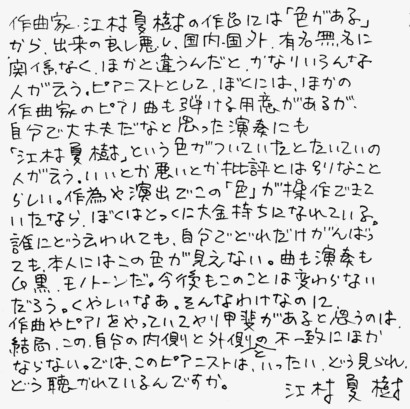 作曲家・江村夏樹の作品には「色がある」
から、出来の良し悪し、国内・国外、有名無名に
関係なく、ほかと違うんだと、かなりいろんな
人が云う。ピアニストとして、ぼくには、ほかの
作曲家のピアノ曲も弾ける用意があるが、
自分で大丈夫だなと思った演奏にも
「江村夏樹」という色がついていたとたいていの
人が云う。いいとか悪いとか批評とは別なこと
らしい。作為や演出でこの「色」が操作できて
いたなら、ぼくはとっくに大金持ちになれている。
誰にどう云われても、自分でどれだけがんばっ
ても、本人にはこの色が見えない。曲も演奏も
白黒、モノトーンだ。今後もこのことは変わらない
だろう。くやしいなあ。そんなわけなのに、
作曲やピアノをやっていてやり甲斐があると思うのは、
結局、この、自分の内側と外側との不一致にほか
ならない。では、このピアニストは、いったい、どう見られ、
どう聴かれているんですか。 江村夏樹